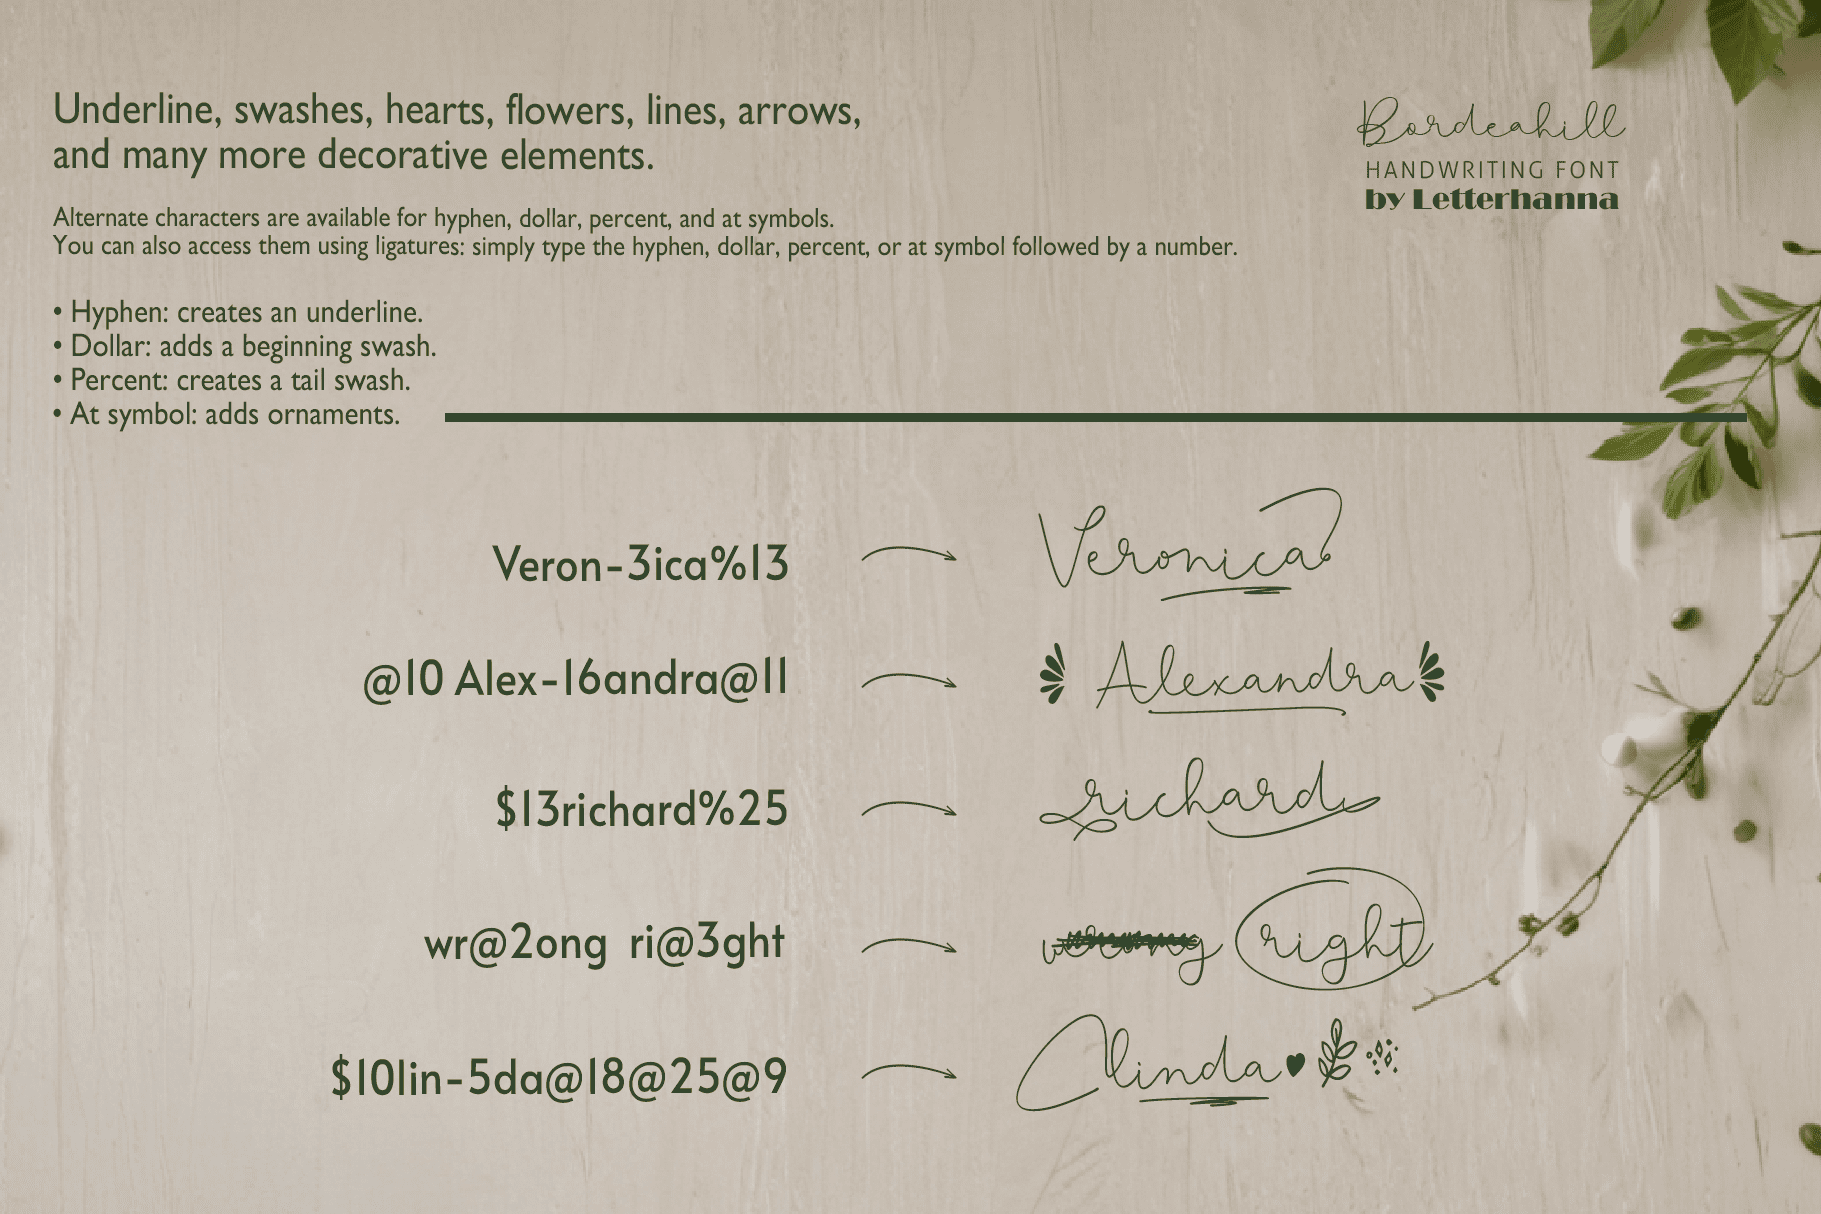 Underline, swashes, hearts, flowers, lines, arrows,
and many more decorative elements.
Bordeahill
HANDWRITING FONT
by Letterhanna
Alternate characters are available for hyphen, dollar, percent, and at symbols.
You can also access them using ligatures: simply type the hyphen, dollar, percent, or at symbol followed by a number.
• Hyphen: creates an underline.
• Dollar: adds a beginning swash.
• Percent: creates a tail swash.
• At symbol: adds ornaments.
Veron-3ica%13 Veronica
@10 Alex-16andra@11 Alexandra
$13richard%25 richard
wr@2ong ri@3ght wrong right
$10lin-5da@18@25@9 linda